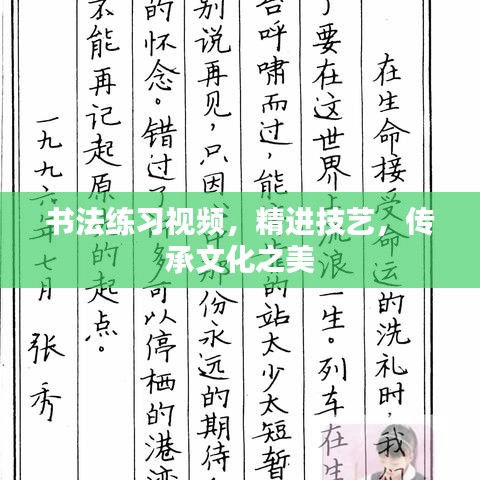 书法练习视频，精进技艺，传
承文化之美
在生命接受命运的洗礼时，我们
了要在这世界上流浪一生。列车在生
台呼啸而过，能的站太少太短暂
别说再见，只因那份永远的期待
的怀念。错过了多可以停栖的港湾
不能再记起原的起点。
一九九六年七月
张秀